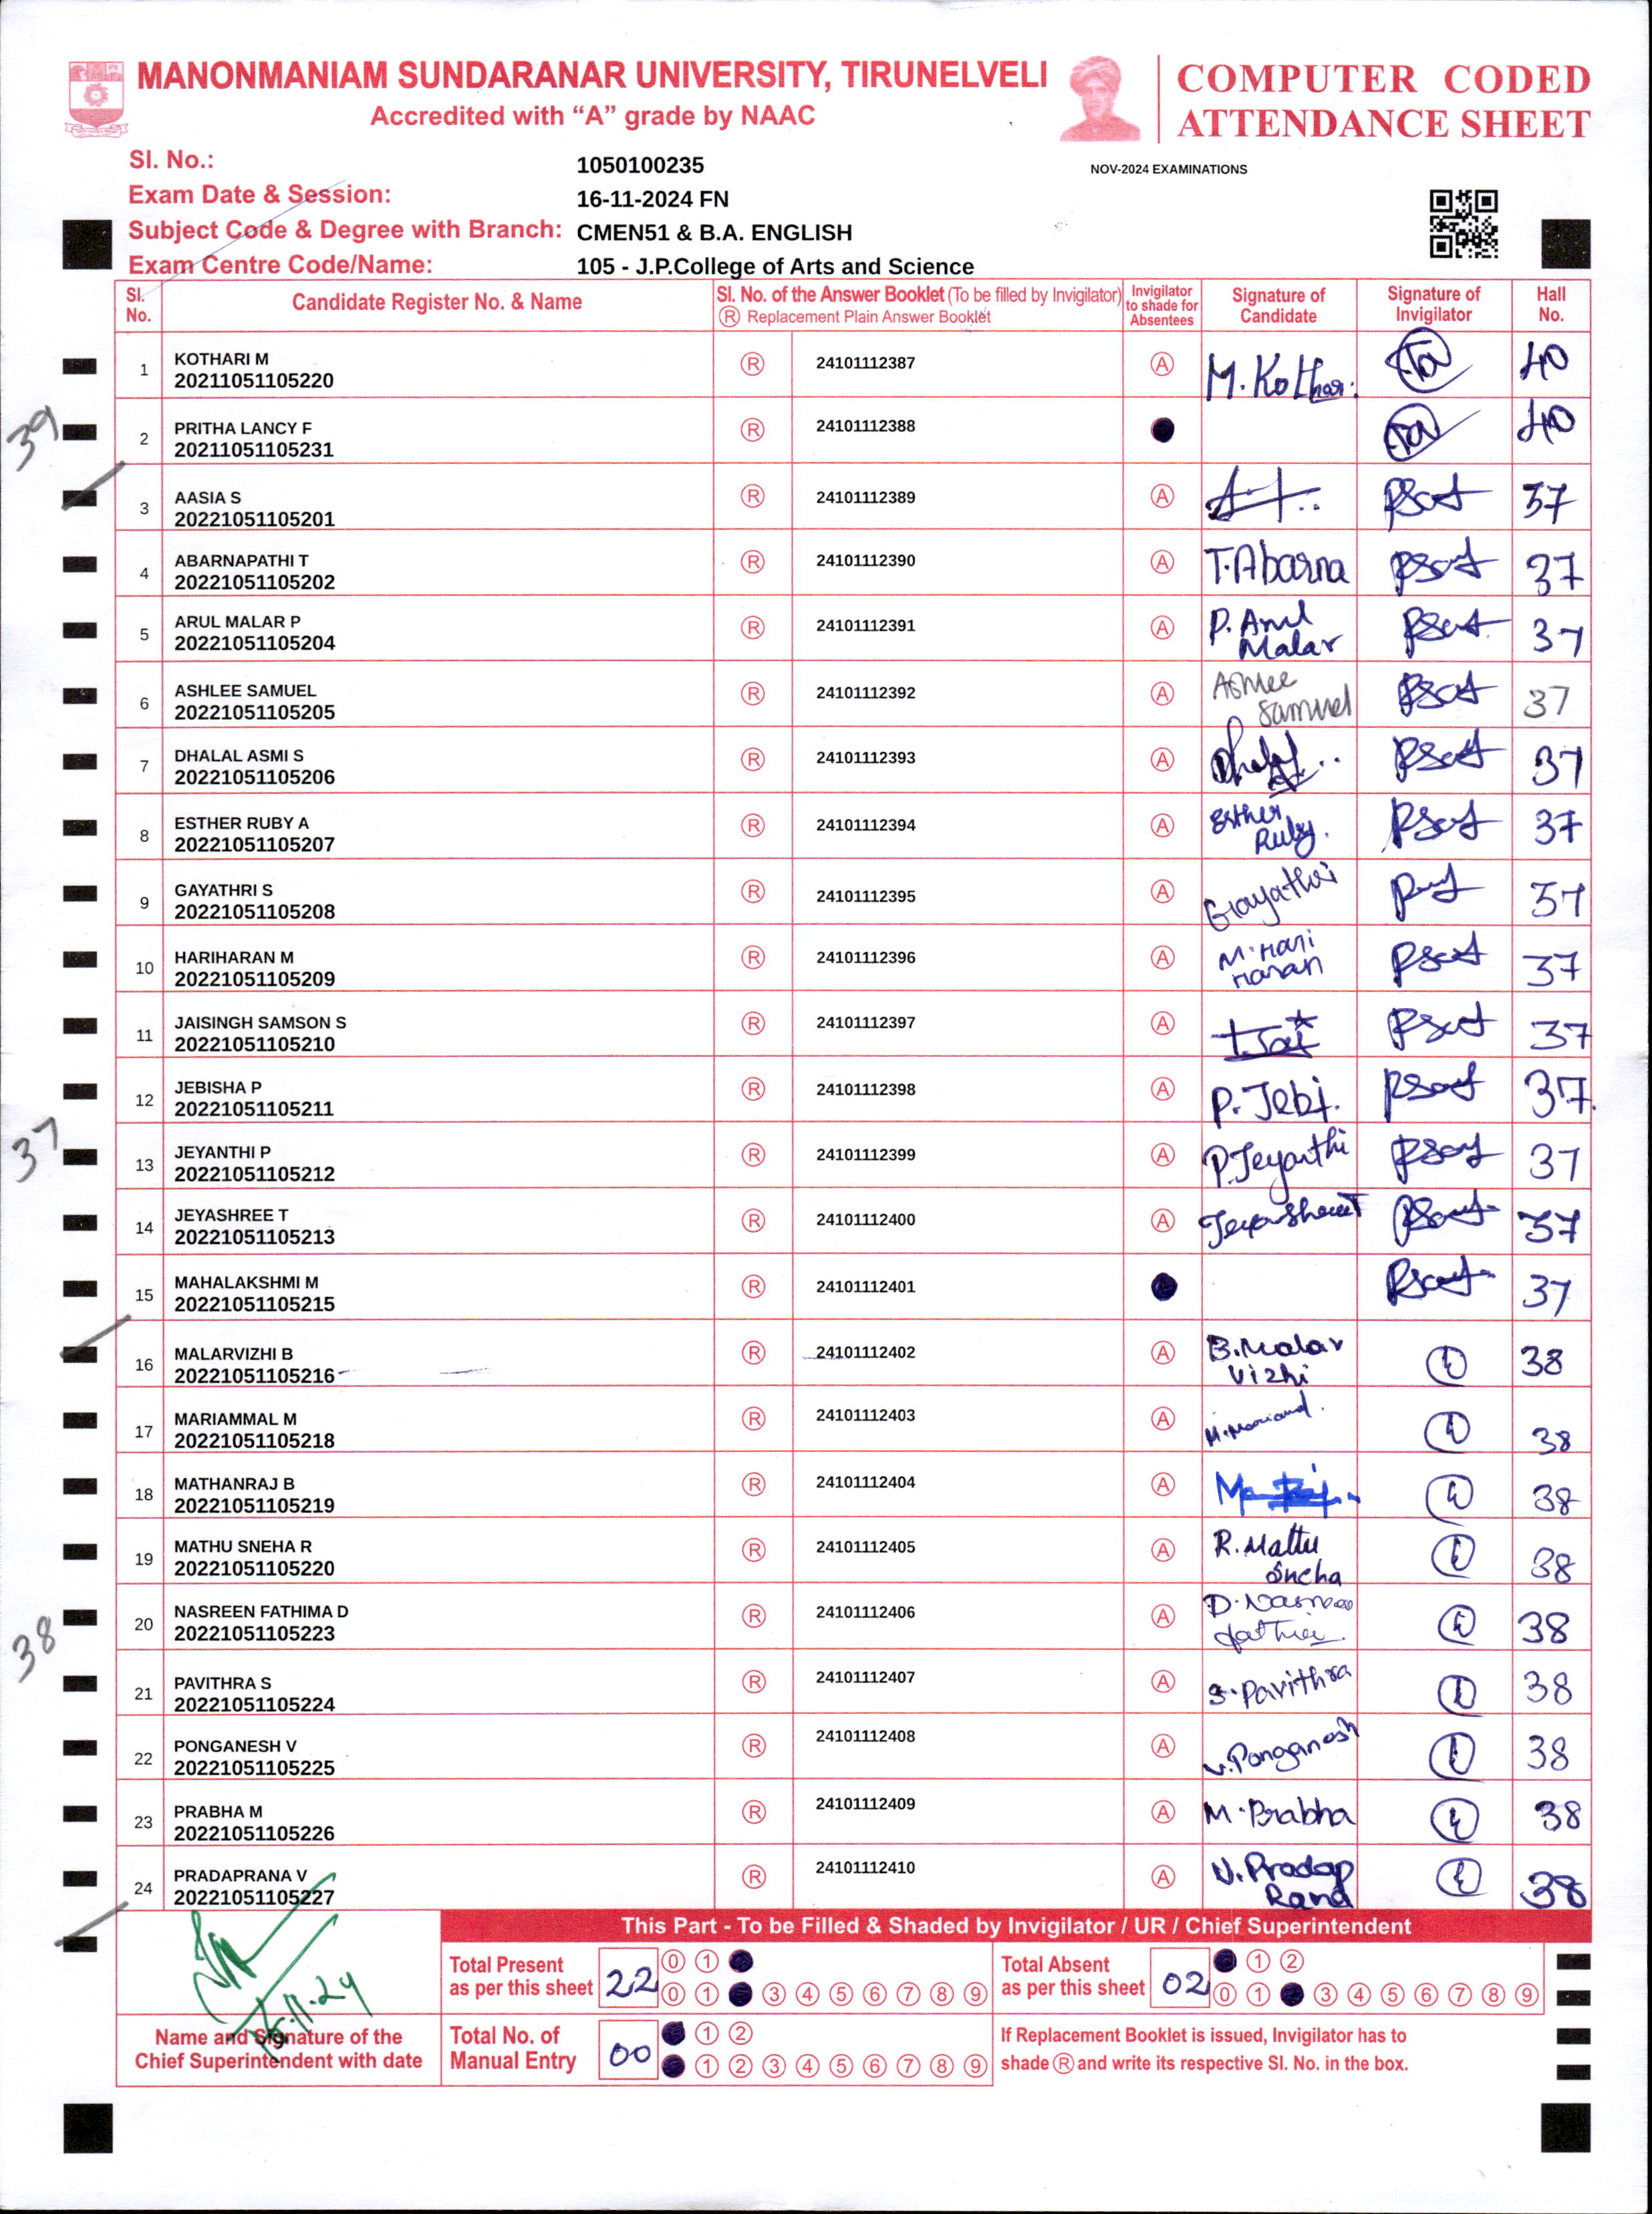 MANONMANIAM SUNDARANAR UNIVERSITY, TIRUNELVELI
Accredited with “A” grade by NAAC
COMPUTER CODED
ATTENDANCE SHEET
Sl. No.: 1050100235
NOV-2024 EXAMINATIONS
Exam Date & Session: 16-11-2024 FN
Subject Code & Degree with Branch: CMEN51 & B.A. ENGLISH
Exam Centre Code/Name: 105 - J.P.College of Arts and Science
Sl. No. Candidate Register No. & Name Sl. No. of the Answer Booklet (To be filled by Invigilator) Ⓡ Replacement Plain Answer Booklet Invigilator to shade for Absentees Signature of Candidate Signature of Invigilator Hall No.
1 KOTHARI M 20211051105220 Ⓡ 24101112387 Ⓐ M.Kothari 40
39
2 PRITHA LANCY F 20211051105231 Ⓡ 24101112388 40
3 AASIA S 20221051105201 Ⓡ 24101112389 Ⓐ 37
4 ABARNAPATHI T 20221051105202 Ⓡ 24101112390 Ⓐ T.Abarna 37
5 ARUL MALAR P 20221051105204 Ⓡ 24101112391 Ⓐ P. Arul Malar 37
6 ASHLEE SAMUEL 20221051105205 Ⓡ 24101112392 Ⓐ Ashlee Samuel 37
7 DHALAL ASMI S 20221051105206 Ⓡ 24101112393 Ⓐ Dhalal 37
8 ESTHER RUBY A 20221051105207 Ⓡ 24101112394 Ⓐ Esther Ruby. 37
9 GAYATHRI S 20221051105208 Ⓡ 24101112395 Ⓐ Gayathri 37
10 HARIHARAN M 20221051105209 Ⓡ 24101112396 Ⓐ M.Hari Haran 37
11 JAISINGH SAMSON S 20221051105210 Ⓡ 24101112397 Ⓐ Jai 37
12 JEBISHA P 20221051105211 Ⓡ 24101112398 Ⓐ P. Jebi. 37.
37
13 JEYANTHI P 20221051105212 Ⓡ 24101112399 Ⓐ P.Jeyanthi 37
14 JEYASHREE T 20221051105213 Ⓡ 24101112400 Ⓐ JeyashreeT 37
15 MAHALAKSHMI M 20221051105215 Ⓡ 24101112401 37
16 MALARVIZHI B 20221051105216 Ⓡ 24101112402 Ⓐ B.Malar Vizhi 38
17 MARIAMMAL M 20221051105218 Ⓡ 24101112403 Ⓐ 38
18 MATHANRAJ B 20221051105219 Ⓡ 24101112404 Ⓐ 38
19 MATHU SNEHA R 20221051105220 Ⓡ 24101112405 Ⓐ R.Mathu Sneha 38
20 NASREEN FATHIMA D 20221051105223 Ⓡ 24101112406 Ⓐ 38
38
21 PAVITHRA S 20221051105224 Ⓡ 24101112407 Ⓐ S.Pavithra 38
22 PONGANESH V 20221051105225 Ⓡ 24101112408 Ⓐ V.Ponganesh 38
23 PRABHA M 20221051105226 Ⓡ 24101112409 Ⓐ M.Prabha 38
24 PRADAPRANA V 20221051105227 Ⓡ 24101112410 Ⓐ V.Pradap Rana 38
This Part - To be Filled & Shaded by Invigilator / UR / Chief Superintendent
Total Present as per this sheet 22 0 1 0 1 3 4 5 6 7 8 9
Total Absent as per this sheet 02 1 2 0 1 3 4 5 6 7 8 9
Name and Signature of the Chief Superintendent with date
Total No. of Manual Entry 00 1 2 1 2 3 4 5 6 7 8 9
If Replacement Booklet is issued, Invigilator has to
shade Ⓡ and write its respective Sl. No. in the box.